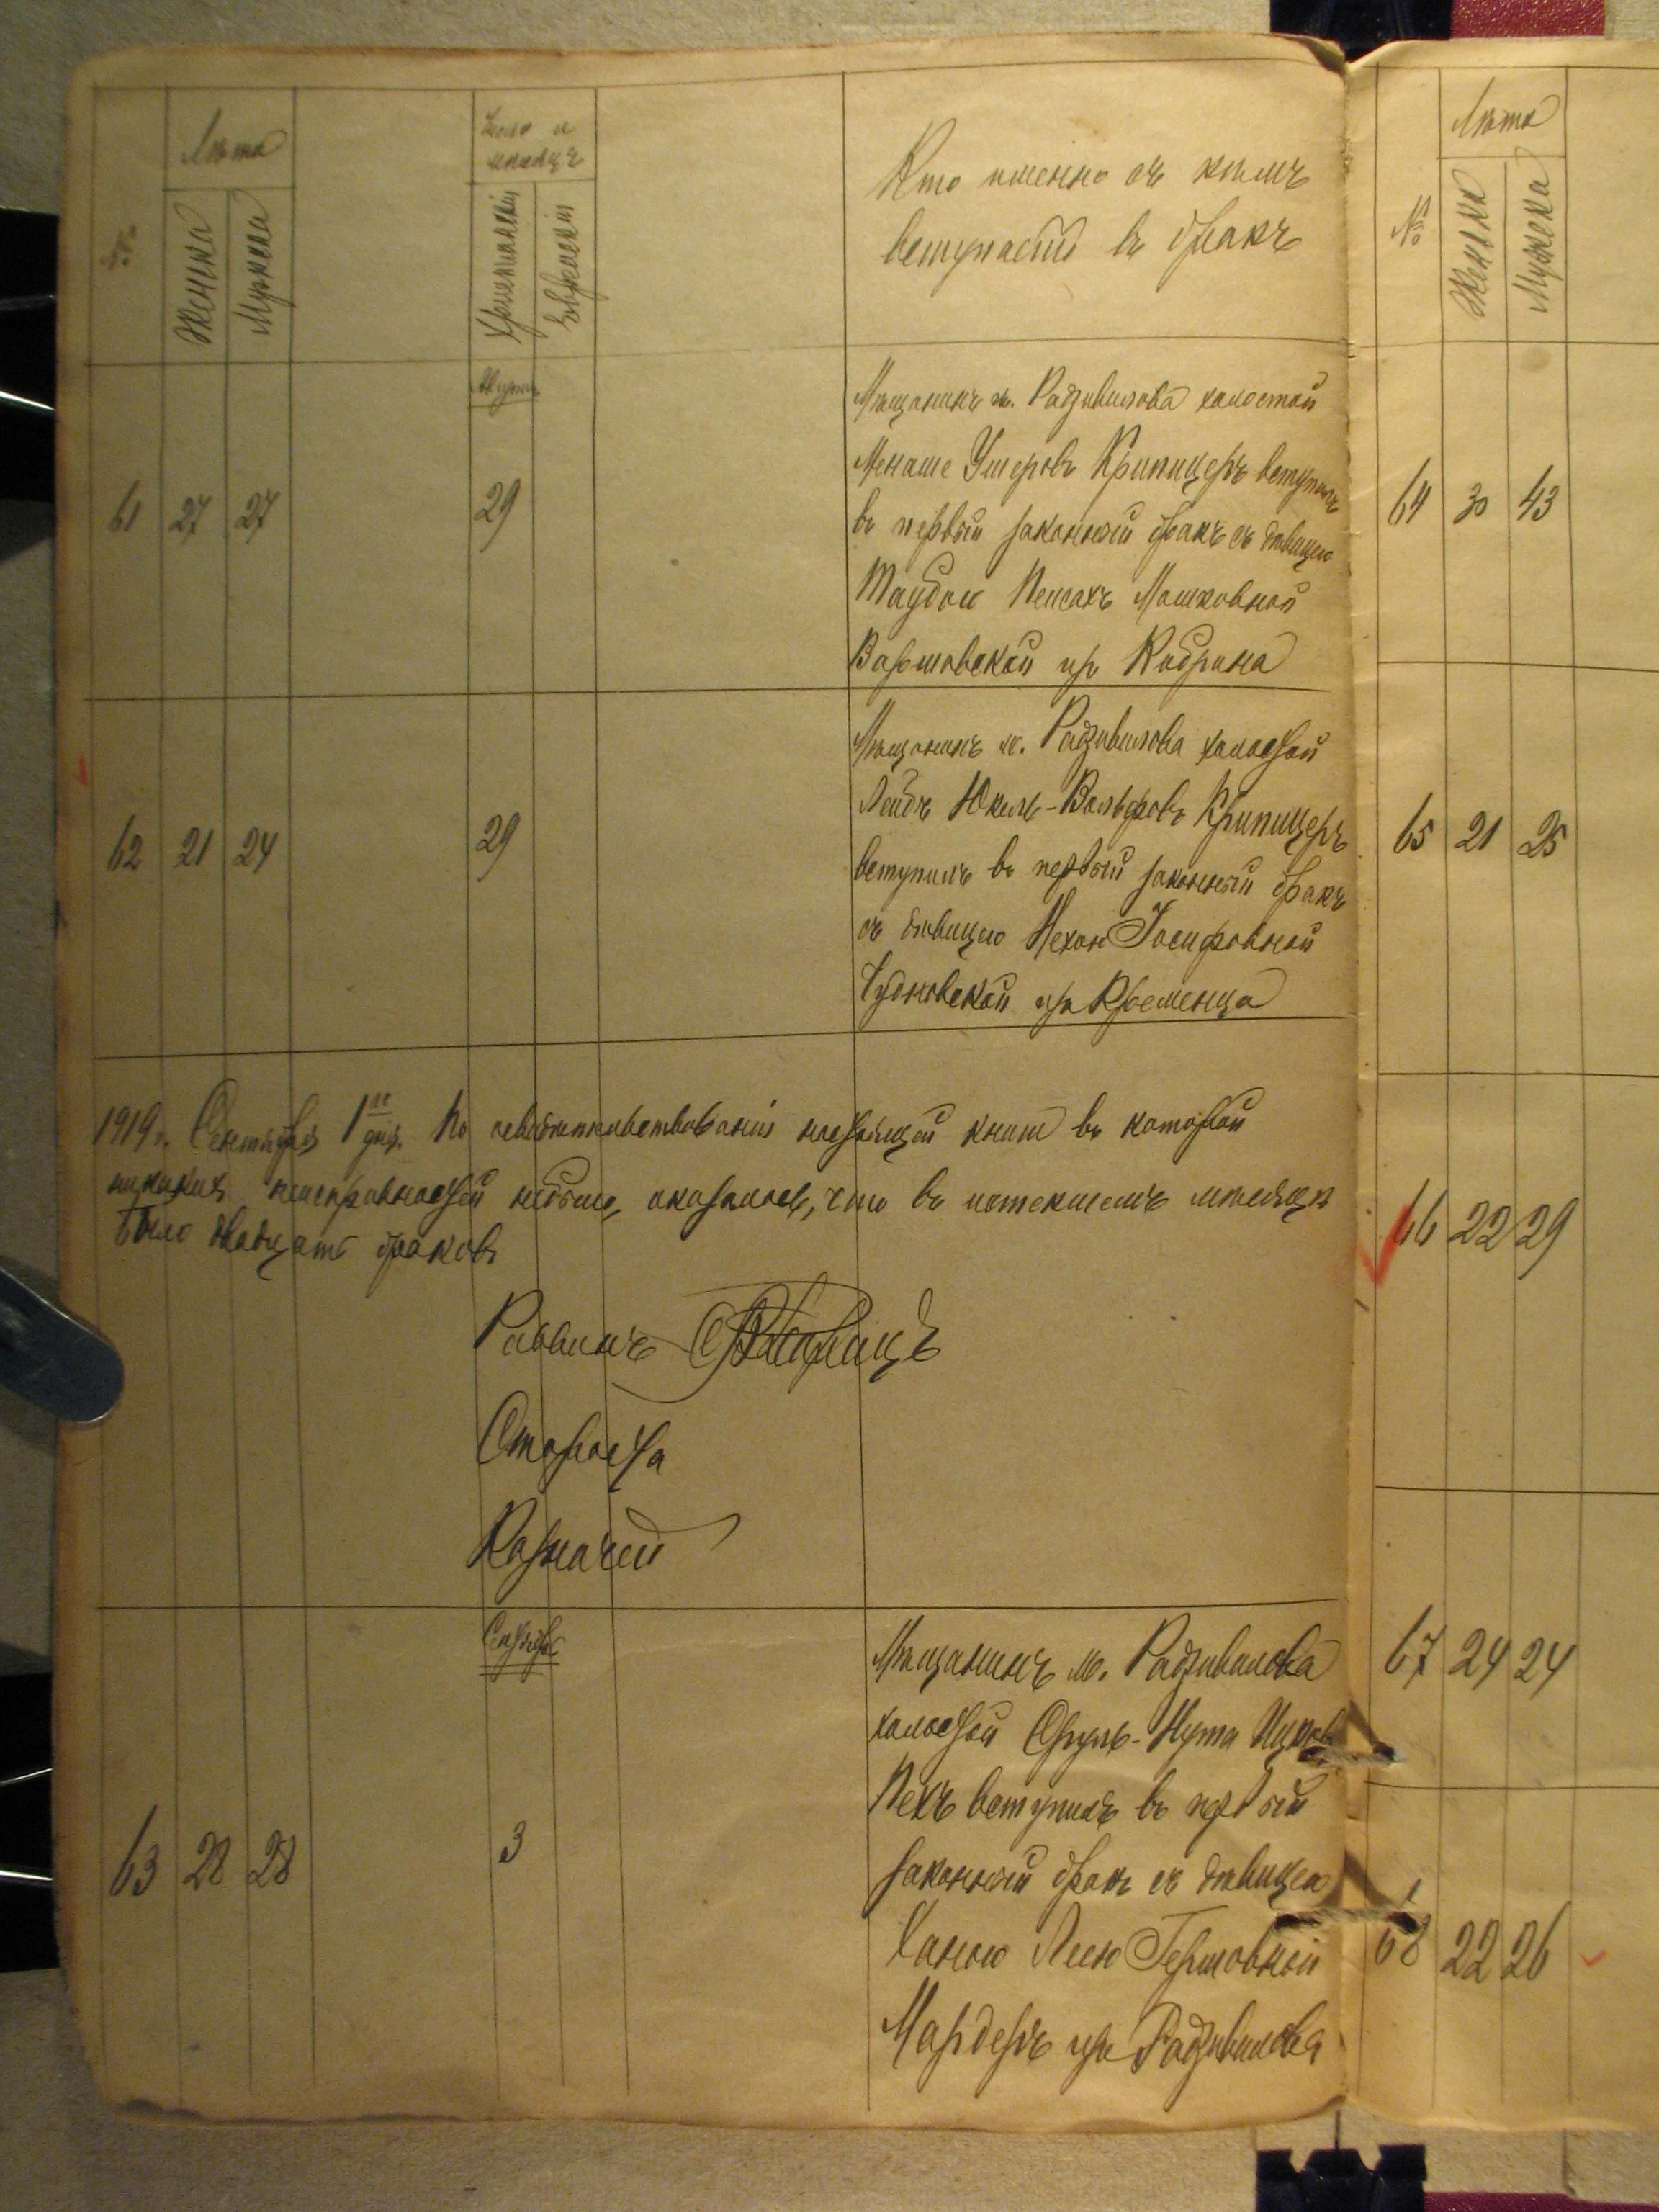 №
Лѣта
Женска
Мужска
Число и
мѣсяцъ
Христіанскій
Еврейскій
Кто именно съ кѣмъ
вступаетъ въ бракъ
61 27 27
Августъ
29
Мѣщанинъ м. Радзивилова холостой
Менаше Ушеровъ Крипицеръ вступилъ
въ первый законный бракъ съ дѣвицею
Таубою Пейсахъ Мошковной
Варшавской изъ Кобрина
62 21 24
29
Мѣщанинъ м. Радзивилова холостой
Лейбъ Юкель-Вольфовъ Крипицеръ
вступилъ въ первый законный бракъ
съ дѣвицею Іосифовной
Чудновской изъ Кременца
1919 г. Сентября 1го дня. По освидѣтельствованіи настоящей книги въ которой
никакихъ неисправностей небыло, оказалось, что въ истекшемъ мѣсяцѣ
было двадцать браковъ
Раввинъ
Староста
Казначей
63 28 28
Сентябрь
3
Мѣщанинъ м. Радзивилова
холостой Сруль-Нута Ицков
Пехъ вступилъ въ первый
законный бракъ съ дѣвицею
Ханою Леею Гершовной
Мардеръ изъ Радзивилова
№
Лѣта
Женска
Мужска
64 30 43
65 21 25
66 22 29
67 24 24
68 22 26